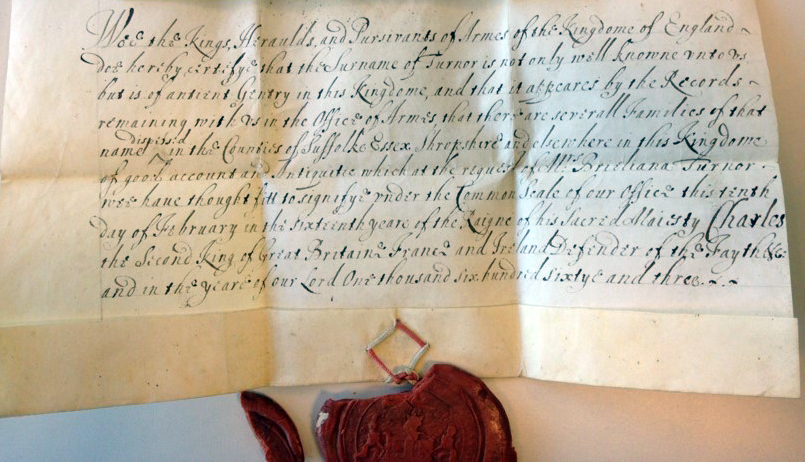 Wee the Kings, Heraulds, and Pursivants of Armes of the Kingdome of England
doe hereby certifye that the Surname of Turnor is not only well knowne vnto vs
but is of antient Gentry in this Kingdome, and that it appeares by the Records
remaining with vs in the Office of Armes that there are severall Families of that
name dispersed in the Counties of Suffolke Essex Shropshire and elsewhere in this Kingdome
of good account and Antiquitee which at the request of Mrs Turnor
wee have thought fitt to signifye vnder the Common Seale of our Office this tenth
day of February in the sixteenth yeare of the Raigne of his Sacred Maiesty Charles
the Second King of Great Britaine France and Ireland Defender of the Fayth &c:
and in the yeare of our Lord One thousand six hundred sixtye and three